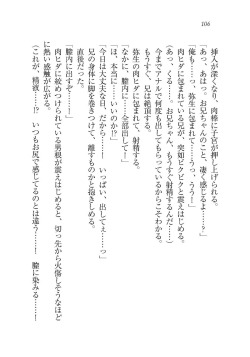 106
挿入が深くなり、肉棒に子宮が押し上げられる。
「あっ、あはっ。お兄ちゃんのこと、凄く感じるよ……っ」
「俺も……っ、弥生に包まれて……っ！」
肉ヒダに包まれている兄が、突如ビクビクと震えはじめる。
（あっ、くるっ。お兄ちゃん、もうすぐ射精するんだ……）
今までアナルで何度も出してもらっているからこそわかる。
もうすぐ、兄は絶頂する。
弥生の肉ヒダに包まれて、射精する。
「なかに、膣内に……っ、全部出して！」
「は、本当に……いいのか!?」
「今日は大丈夫な日、だから……！　いっぱい、出してぇ……っ」
兄の身体に脚を巻きつけて、離すものかと抱きしめる。
直後だった。
「膣内に出すぞ……！」
肉ヒダに絞めつけられている男根が震えはじめると、切っ先から火傷しそうなほど
に熱い感触が広がる。
（これが、精液……!?　いつもお尻で感じてるのとは違う……！　膣に染みる……